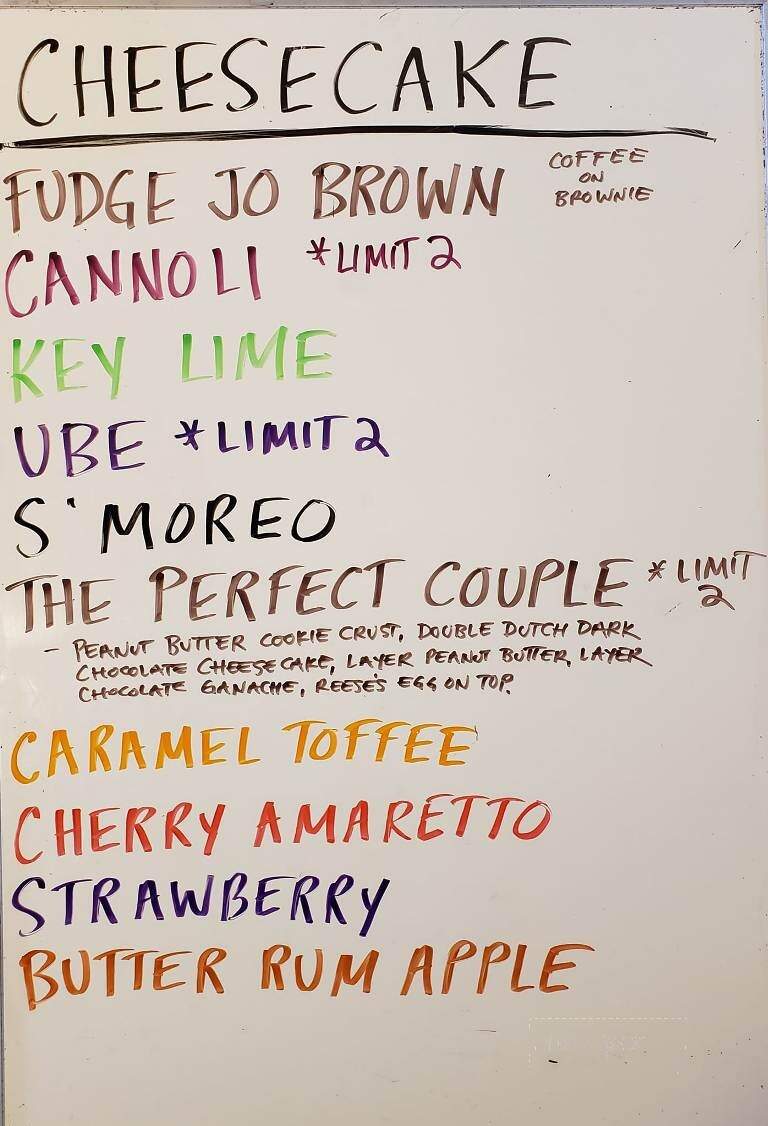 CHEESECAKE
FUDGE JO BROWN COFFEE ON BROWNIE
CANNOLI *LIMIT 2
KEY LIME
UBE *LIMIT 2
S'MOREO
THE PERFECT COUPLE *LIMIT 2
- PEANUT BUTTER COOKIE CRUST, DOUBLE DUTCH DARK
CHOCOLATE CHEESECAKE, LAYER PEANUT BUTTER, LAYER
CHOCOLATE GANACHE, REESE'S EGG ON TOP.
CARAMEL TOFFEE
CHERRY AMARETTO
STRAWBERRY
BUTTER RUM APPLE